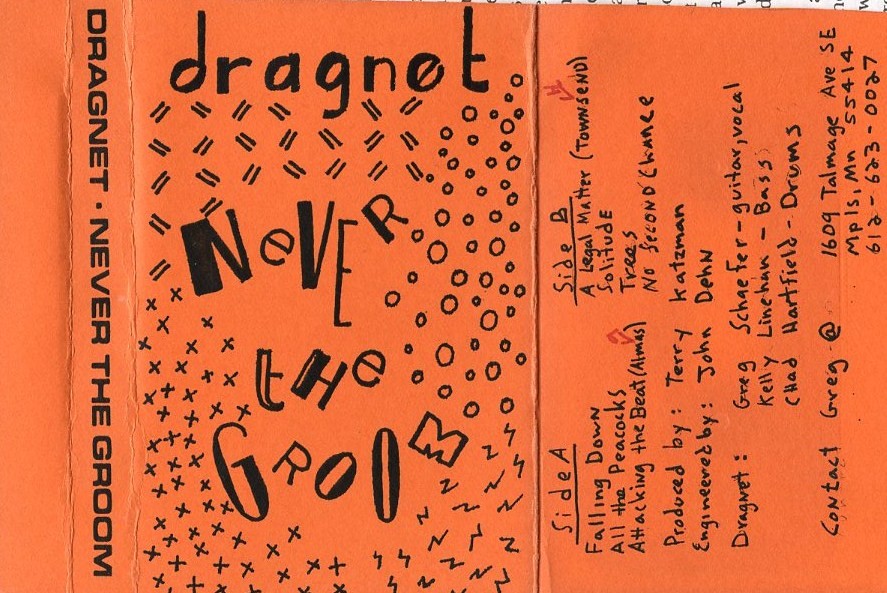 DRAGNET · NEVER THE GROOM
dragnet
NeVER
the
GROOM
Side A
Falling Down
All the Peacocks
Attacking the Beat (Almas)
Side B
A Legal Matter (TOWNSEND)
H
Solitude
Trees
No Second Chance
Produced by: Terry Katzman
Engineered by: John Dehn
Dragnet: Greg Schaefer - guitar, vocal
Kelly Linehan - Bass
Chad Hartfield - Drums
Contact Greg @ 1609 Talmage Ave SE
Mpls, Mn 55414
612-623-0027